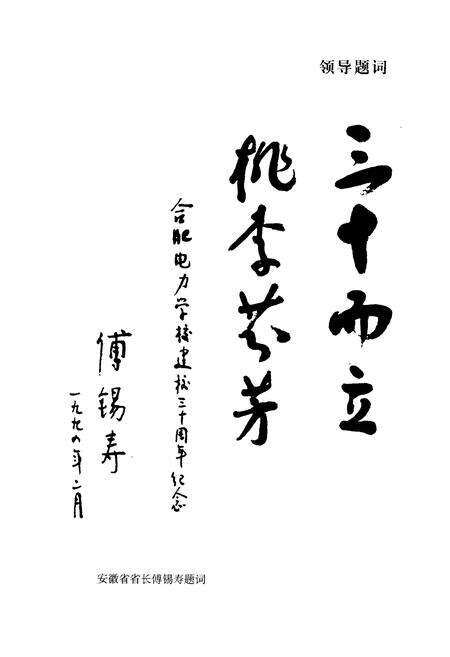 领导题词
三十而立
桃李芬芳
合肥电力学校建校三十周年纪念
傅锡寿
一九九 年二月
安徽省省长傅锡寿题词